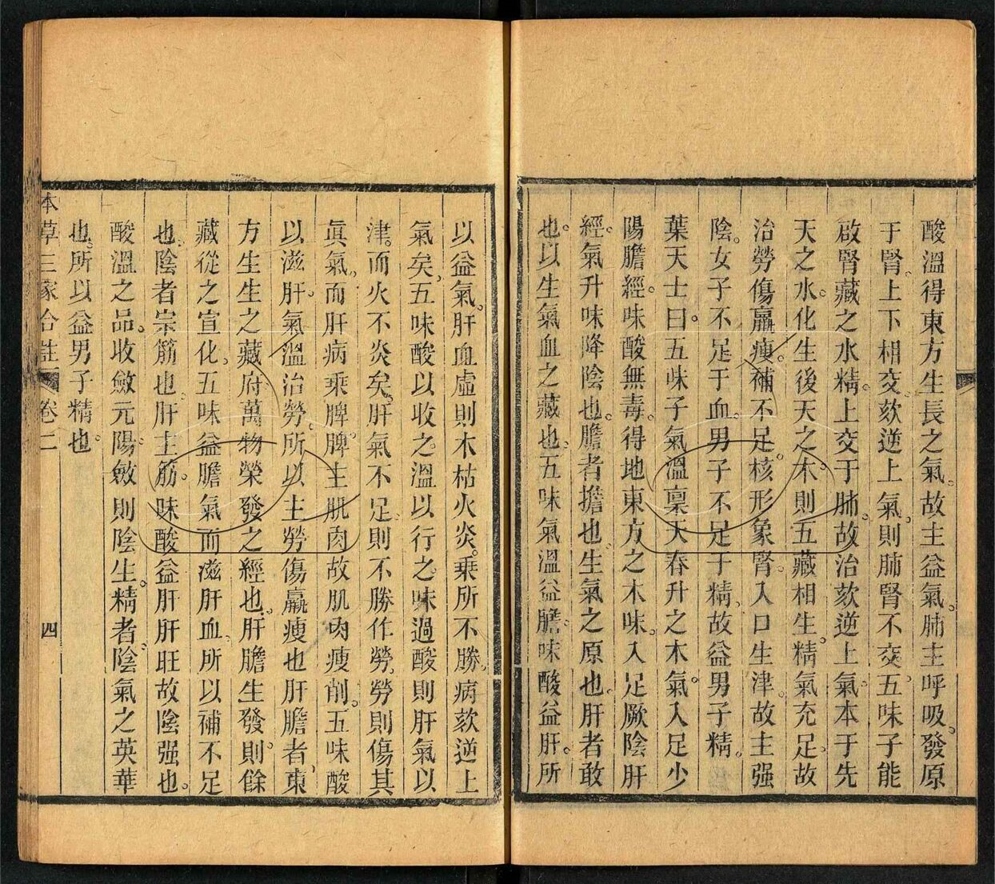 酸溫得東方生長之氣。故主益氣。肺主呼吸。發原
于腎。上下相交。欬逆上氣。則肺腎不交。五味子能
啟腎藏之水精。上交于肺。故治欬逆上氣。本于先
天之水。化生後天之木。則五藏相生。精氣充足。故
治勞傷羸瘦。補不足。核形象腎。入口生津。故主强
陰。女子不足于血。男子不足于精。故益男子精。
葉天士曰。五味子氣溫。稟天春升之木氣。入足少
陽膽經。味酸無毒。得地東方之木味。入足厥陰肝
經。氣升味降。陰也。膽者擔也。生氣之原也。肝者敢
也。以生氣血之藏也。五味氣溫益膽。味酸益肝。所
以益氣。肝血虛則木枯火炎。乘所不勝。病欬逆上
氣矣。五味酸以收之。溫以行之。味過酸。則肝氣以
津。而火不炎矣。肝氣不足。則不勝作勞。勞則傷其
眞氣。而肝病乘脾。脾主肌肉。故肌肉瘦削。五味酸
以滋肝。氣溫治勞。所以主勞傷羸瘦也。肝膽者。東
方生生之藏府。萬物榮發之經也。肝膽生發。則餘
藏從之宣化。五味益膽氣而滋肝血。所以補不足
也。陰者宗筋也。肝主筋。味酸益肝。肝旺故陰强也。
酸溫之品。收斂元陽。斂則陰生。精者。陰氣之英華
也。所以益男子精也。
本草三家合註
卷二
四